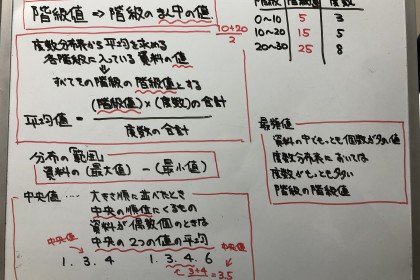 階級値 ⇒ 階級のまん中の値
10+20
2
階級 階級値 度数
0〜10 5 3
10〜20 15 5
20〜30 25 8
度数分布表から平均を求める
各階級に入っている資料の値
すべてその階級の階級値とする
平均値 = (階級値)×(度数)の合計
度数の合計
分布の範囲
資料の(最大値) − (最小値)
中央値 ‥‥ 大きさ順に並べたとき
中央の順位にくるもの
資料が偶数個のときは
中央の2つの値の平均
中央値
1. 3. 4
1. 3. 4. 6
中央値
3+4
2
=3.5
最頻値
資料の中でもっとも個数が多い値
度数分布表においては
度数がもっとも多い
階級の階級値